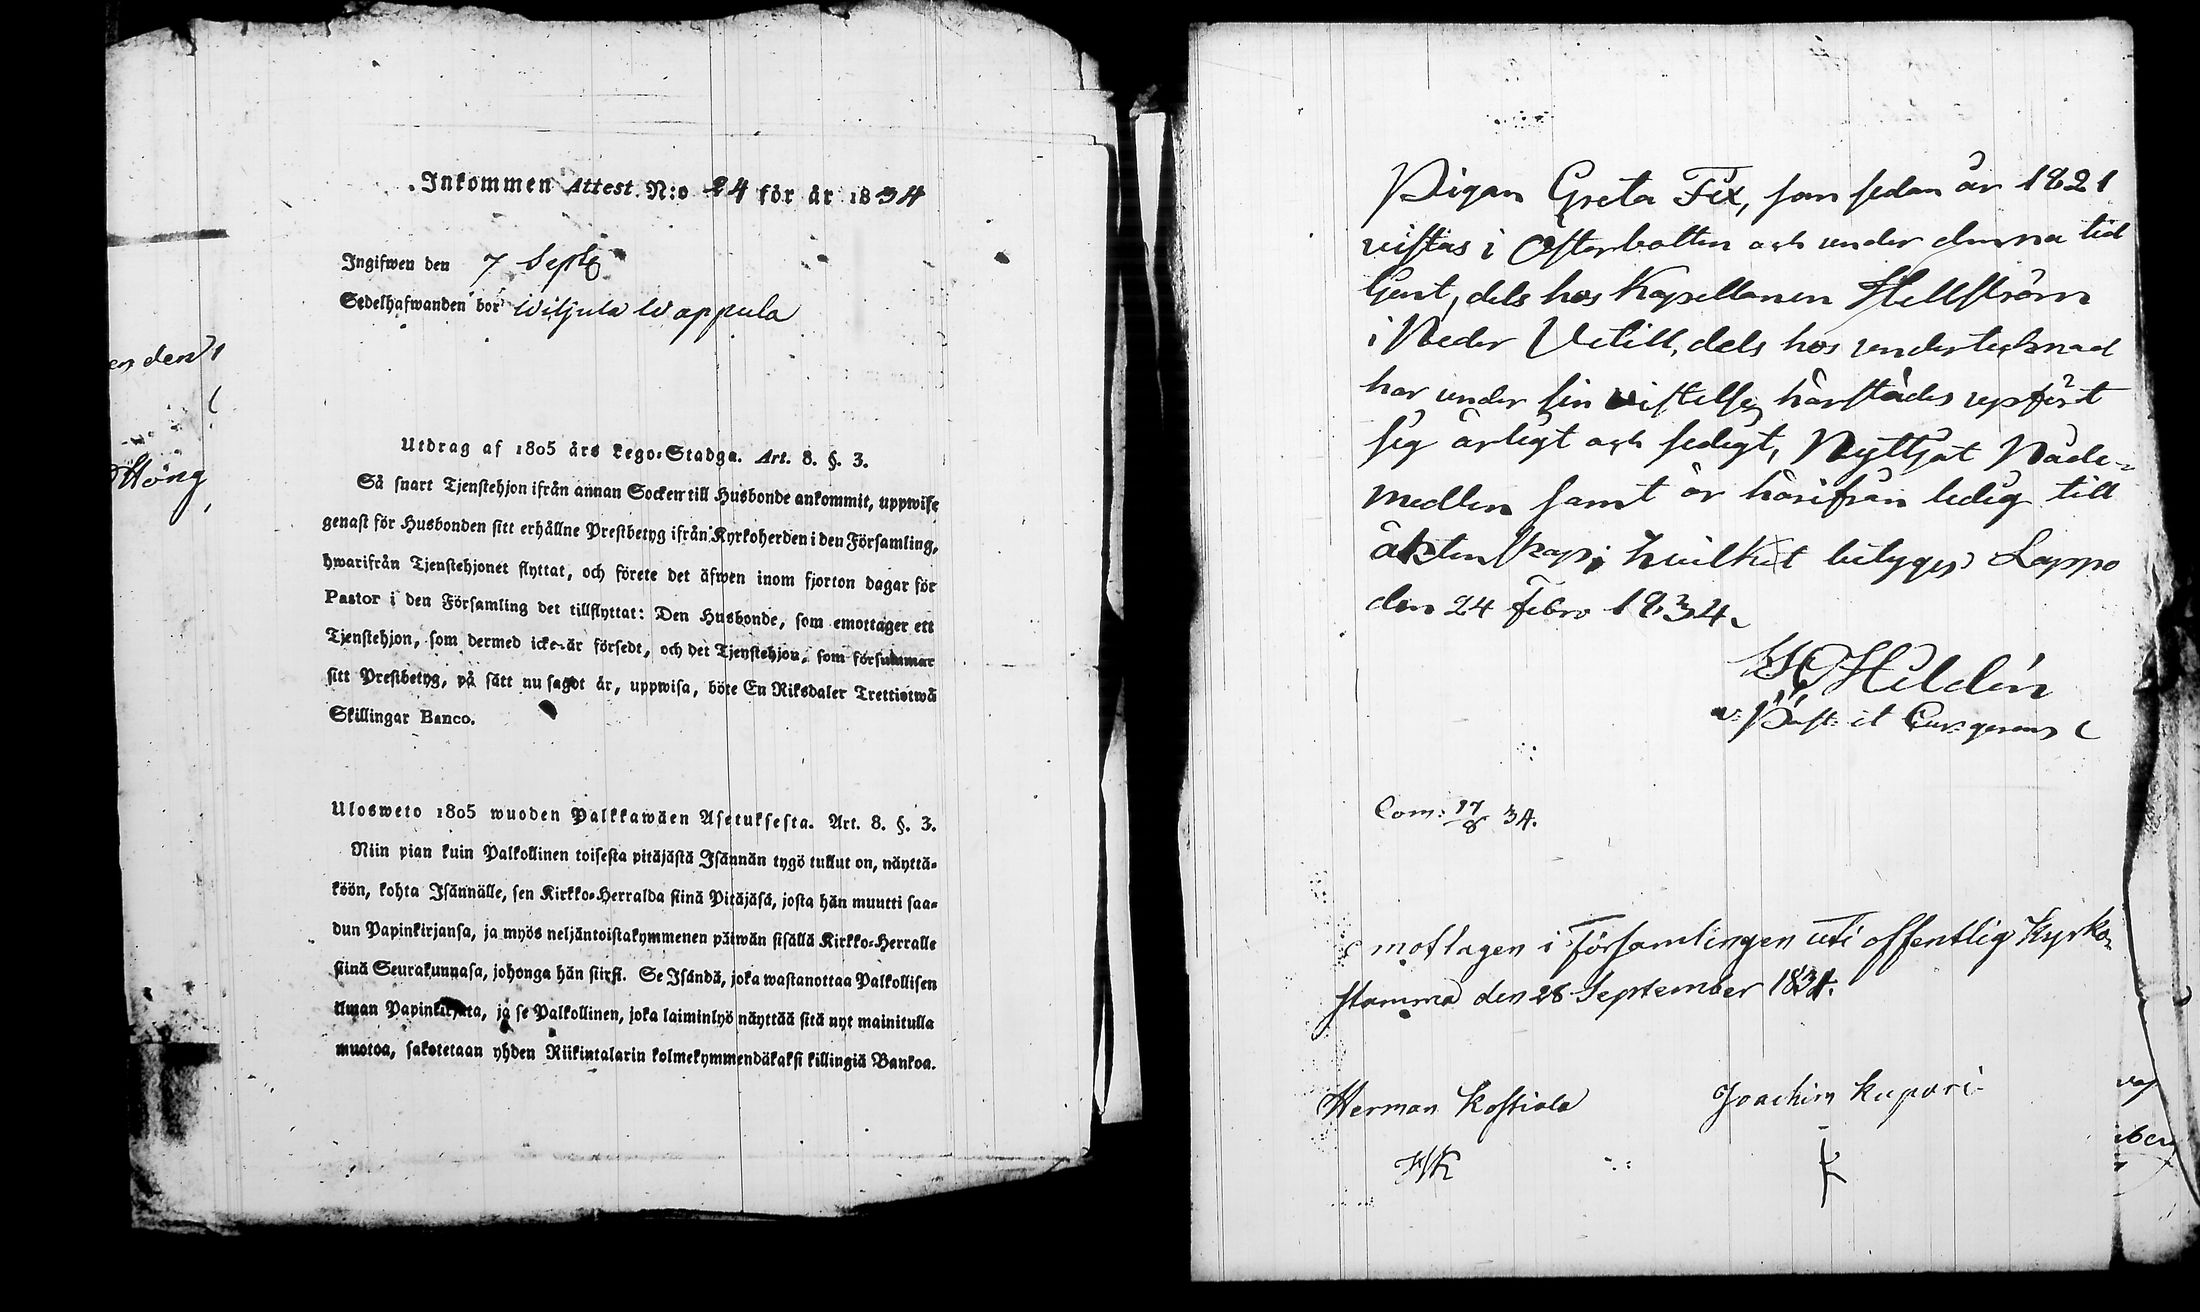 en den
Höng
Inkommen Attest N:o 24 för år 1834
Ingifwen den 7 Sept
Sedelhafwanden bor Wiljula Wappula
Utdrag af 1805 års Lego-Stadga. Art. 8. §. 3.
Så snart Tjenstehjon ifrån annan Socken till Husbonde ankommit, uppwise
genast för Husbonden sitt erhållne Prestbetyg ifrån Kyrkoherden i den Församling,
hwarifrån Tjenstehjonet flyttat, och förete det äfwen inom fjorton dagar för
Pastor i den Församling det tillflyttat: Den Husbonde, som emottager ett
Tjenstehjon, som dermed icke är försedt, och det Tjenstehjon, som försummar
sitt Prestbetyg, på sätt nu sagdt är, uppwisa, böte En Riksdaler Trettiotwå
Skillingar Banco.
Ulosweto 1805 wuoden Palkkawäen Asetuksesta. Art. 8. §. 3.
Niin pian kuin Palkollinen toisesta pitäjästä Isännän tygö tullut on, näyttä-
köön, kohta Isännälle, sen Kirkko-Herralda siinä Pitäjäsä, josta hän muutti saa-
dun Papinkirjansa, ja myös neljäntoistakymmenen päiwän sisällä Kirkko-Herralle
siinä Seurakunnasa, johonga hän siirsi. Se Isändä, joka wastanottaa Palkollisen
ilman Papinkirjata, ja se Palkollinen, joka laiminlyö näyttää sitä nyt mainitulla
muotoa, sakotetaan yhden Riikintalarin kolmekymmendäkaksi killingiä Bankoa.
Pigan Greta Fix, som sedan år 1821
vistas i Österbotten och under denna tid
tjent, dels hos Kapellanen Hellström
i Neder Vetill, dels hos undertecknad
har under sin vistelse härstädes upfört
sig ärligt och sedigt, Nyttjat Nåde-
medlen samt är härifrån ledig till
äktenskap; hvilket betygas Lappo
den 24 Febro 1834.
Heldén
v: Past: et Cur: gerens
Com: 17/8 34.
Emottagen i Församlingen uti offentlig Kyrko-
stamma den 28 September 1834.
Herman Kostiala Joachim Kupari
HK